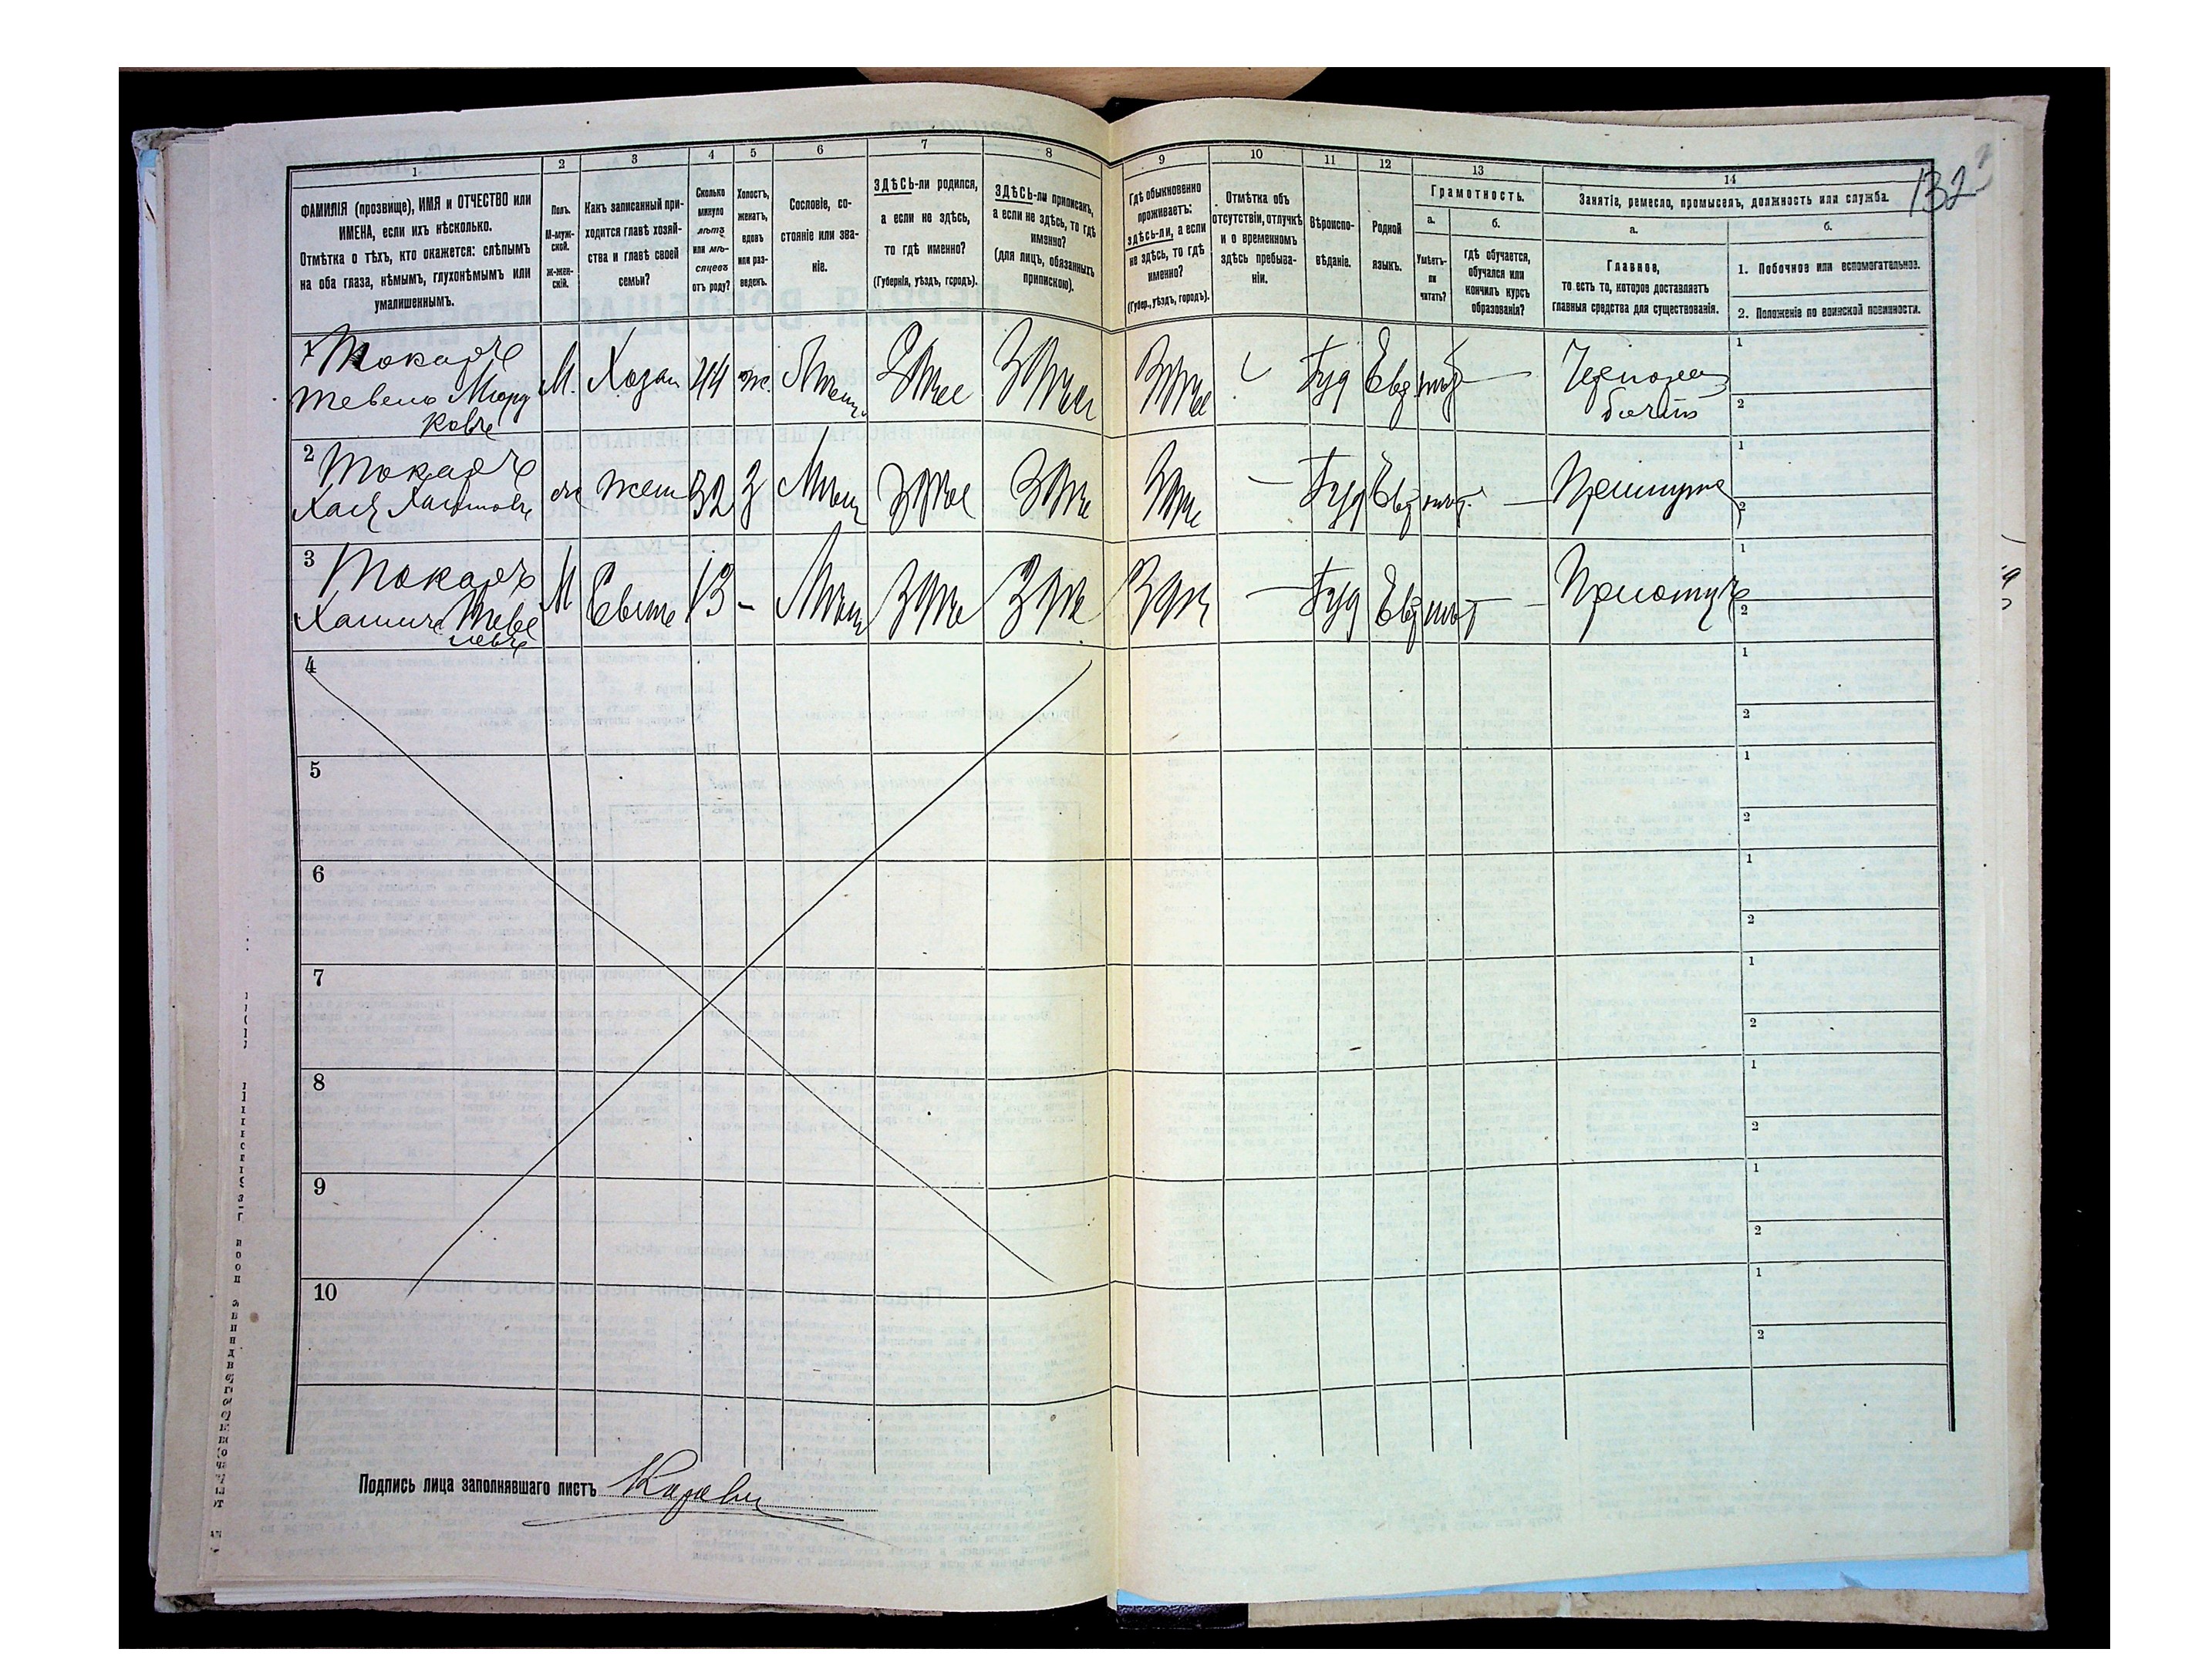 132
1
2
3
4
5
6
7
8
9
10
11
12
13
14
ФАМИЛІЯ (прозвище), ИМЯ и ОТЧЕСТВО или
ИМЕНА, если ихъ нѣсколько.
Отмѣтка о тѣхъ, кто окажется: слѣпымъ
на оба глаза, нѣмымъ, глухонѣмымъ или
умалишеннымъ.
Полъ.
М-муж-
ской.
ж-жен-
скій.
Какъ записанный при-
ходится главѣ хозяй-
ства и главѣ своей
семьи?
Сколько
минуло
лѣтъ
или мѣ-
сяцевъ
отъ роду?
Холостъ,
женатъ,
вдовъ
или раз-
веденъ.
Сословіе, со-
стояніе или зва-
ніе.
ЗДѢСЬ-ли родился,
а если не здѣсь,
то гдѣ именно?
(Губернія, уѣздъ, городъ).
ЗДѢСЬ-ли приписанъ,
а если не здѣсь, то гдѣ
именно?
(для лицъ, обязанныхъ
припискою).
Гдѣ обыкновенно
проживаетъ:
здѣсь-ли, а если
не здѣсь, то гдѣ
именно?
(Губер., уѣздъ, городъ).
Отмѣтка объ
отсутствіи, отлучкѣ
и о временномъ
здѣсь пребыва-
ніи.
Вѣроиспо-
вѣданіе.
Родной
языкъ.
Грамотность.
а.
Умѣетъ-
ли
читать?
б.
гдѣ обучается,
обучался или
кончилъ курсъ
образованія?
Занятіе, ремесло, промыселъ, должность или служба.
а.
Главное,
то есть то, которое доставляетъ
главныя средства для существованія.
б.
1. Побочное или вспомогательное.
2. Положеніе по воинской повинности.
1 Токаръ
Тевель Морд
ковъ
М. Хозяи 44 ж. Мѣщ. Здѣсе Здѣсе Здѣсе Іуд Евр нѣт Чернораб
1
2
2 Токаръ
Хася
ж жен 32 З Мѣщ Здѣсе Здѣсе Здѣсе — Іуд Евр нѣт —
1
2
3 Токаръ
Хаимъ Теве
левъ
М 13 - Мѣщ Здѣсе Здѣсе Здѣсе — Іуд Евр нѣт —
1
2
4
1
2
5
1
2
6
1
2
7
1
2
8
1
2
9
1
2
10
1
2
Подпись лица заполнявшаго листъ